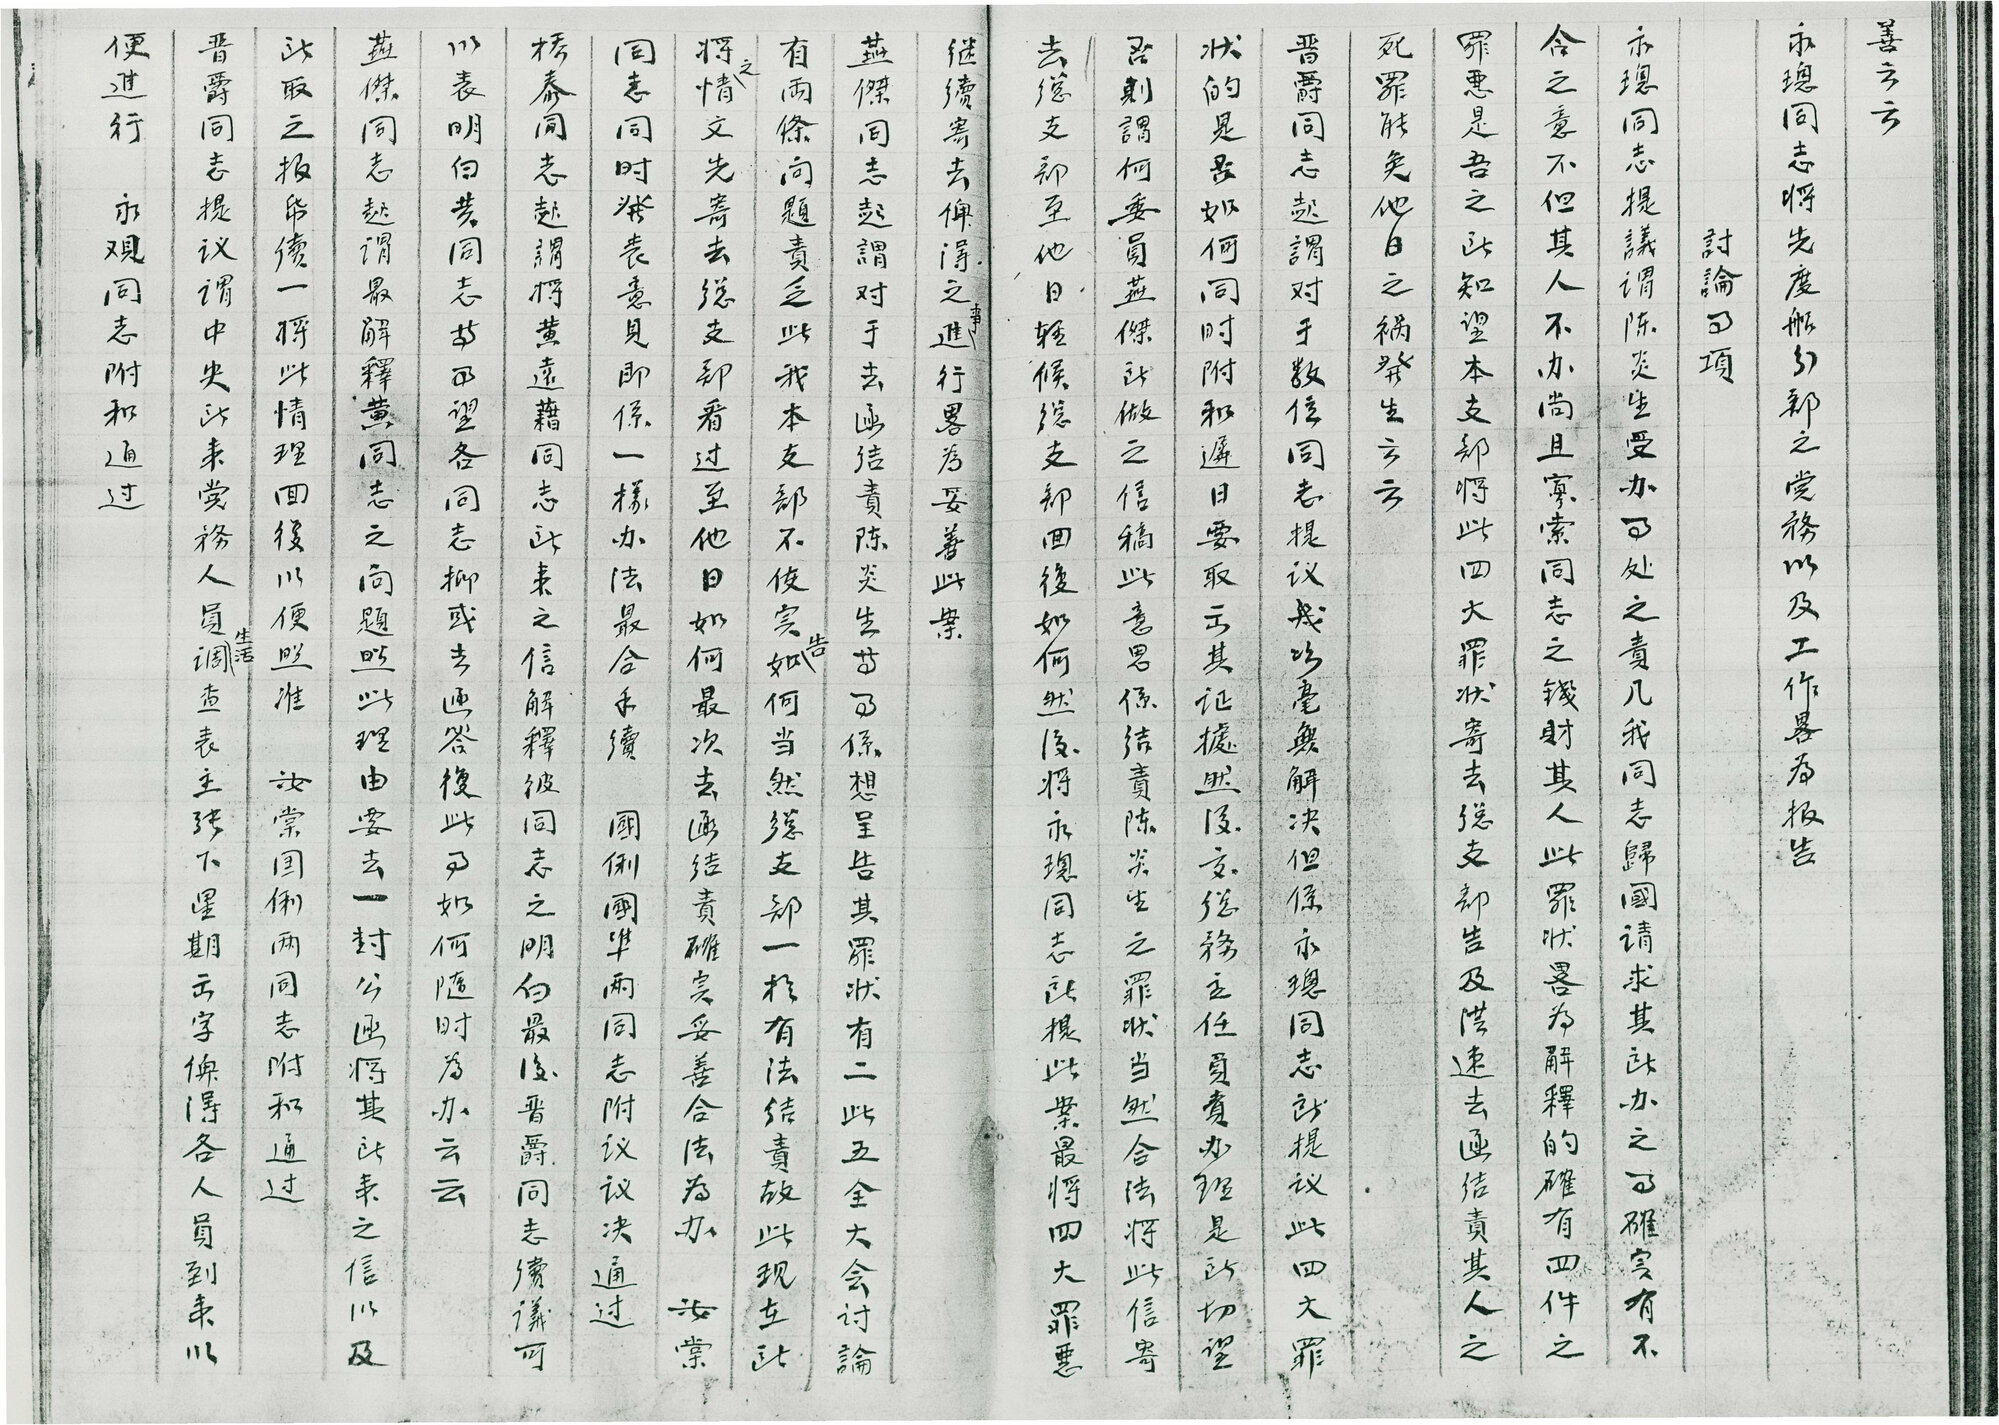 善云云
永璁同志将先度船引部之党務以及工作畧為报告
討論事項
永璁同志提議谓陈炎生受办事处之責凡我同志歸國请求其所办之事確实有不
合之意不但其人不办尚且寡索同志之錢財其人此罪状畧为解釋的確有四件之
罪悪是吾之所知望本支部将此四大罪状寄去総支部告及洪速去函结責其人之
死罪能免他日之祸発生云云
晋爵同志起謂对于数位同志提议我以毫無解决但係永璁同志所提议此四大罪
状的是否如何同时附和遲日要取出其证據然後交総務主任員責办理是所切望
否則謂何委員燕傑所做之信稿此意思係结責陈炎生之罪状当然合法将此信寄
去総支部至他日轻候総支部回復如何然後将永璁同志所提此案最将四大罪悪
继續寄去俾得之事進行畧为妥善此案
燕傑同志起謂对于去函结責陈炎生等事係想呈告其罪状有二此五全大会讨論
有両條问題責乏此我本支部不佼実告如何当然総支部一於有法结責故此现在所
将之情文先寄去総支部看过至他日如何最次去函结責確实妥善合法为办 汝棠
同志同时発表意見即係一様办法最合手續 國俐國準两同志附议议决通过
桥泰同志起謂将黄遠藉同志所来之信解釋彼同志之明白最後晋爵同志續議可
以表明白黄同志等事望各同志抑或去函答復此事如何隨时为办云云
燕傑同志起谓最解釋黄同志之问題照此理由要去一封公函将其所来之信以及
所取之报昂續一将此情理回後以便照准 汝棠国俐两同志附和通过
晋爵同志提议谓中央所来党務人員生活調查表主張下星期出字俾得各人員到来以
便進行 永观同志附和通过